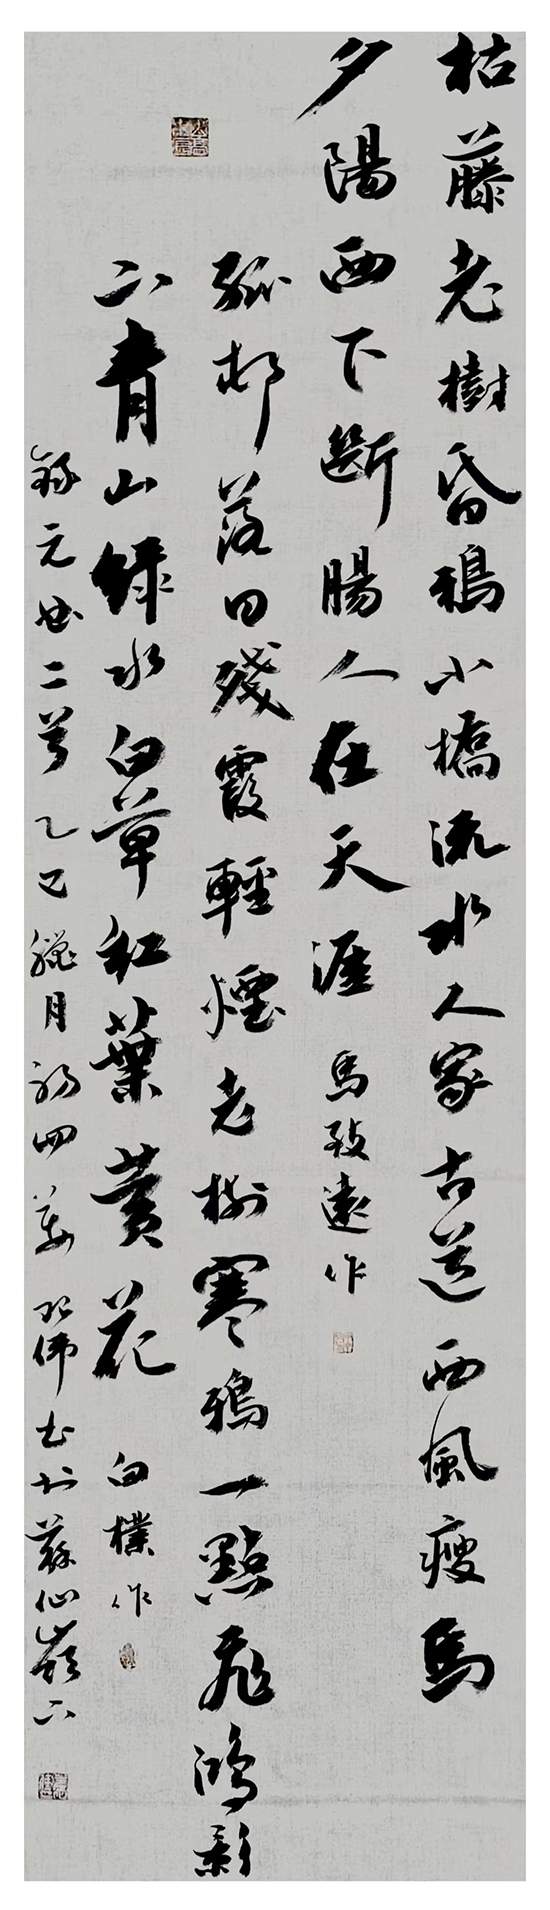 枯藤老樹昏鴉小橋流水人家古道西風瘦馬
夕陽西下斷腸人在天涯 馬致遠作
孤邨落日殘霞輕煙老樹寒鴉一點飛鴻影
下青山綠水白草紅葉黃花 白樸作
錄元曲二首乙巳臘月初四伟书於蘇仙嶺下